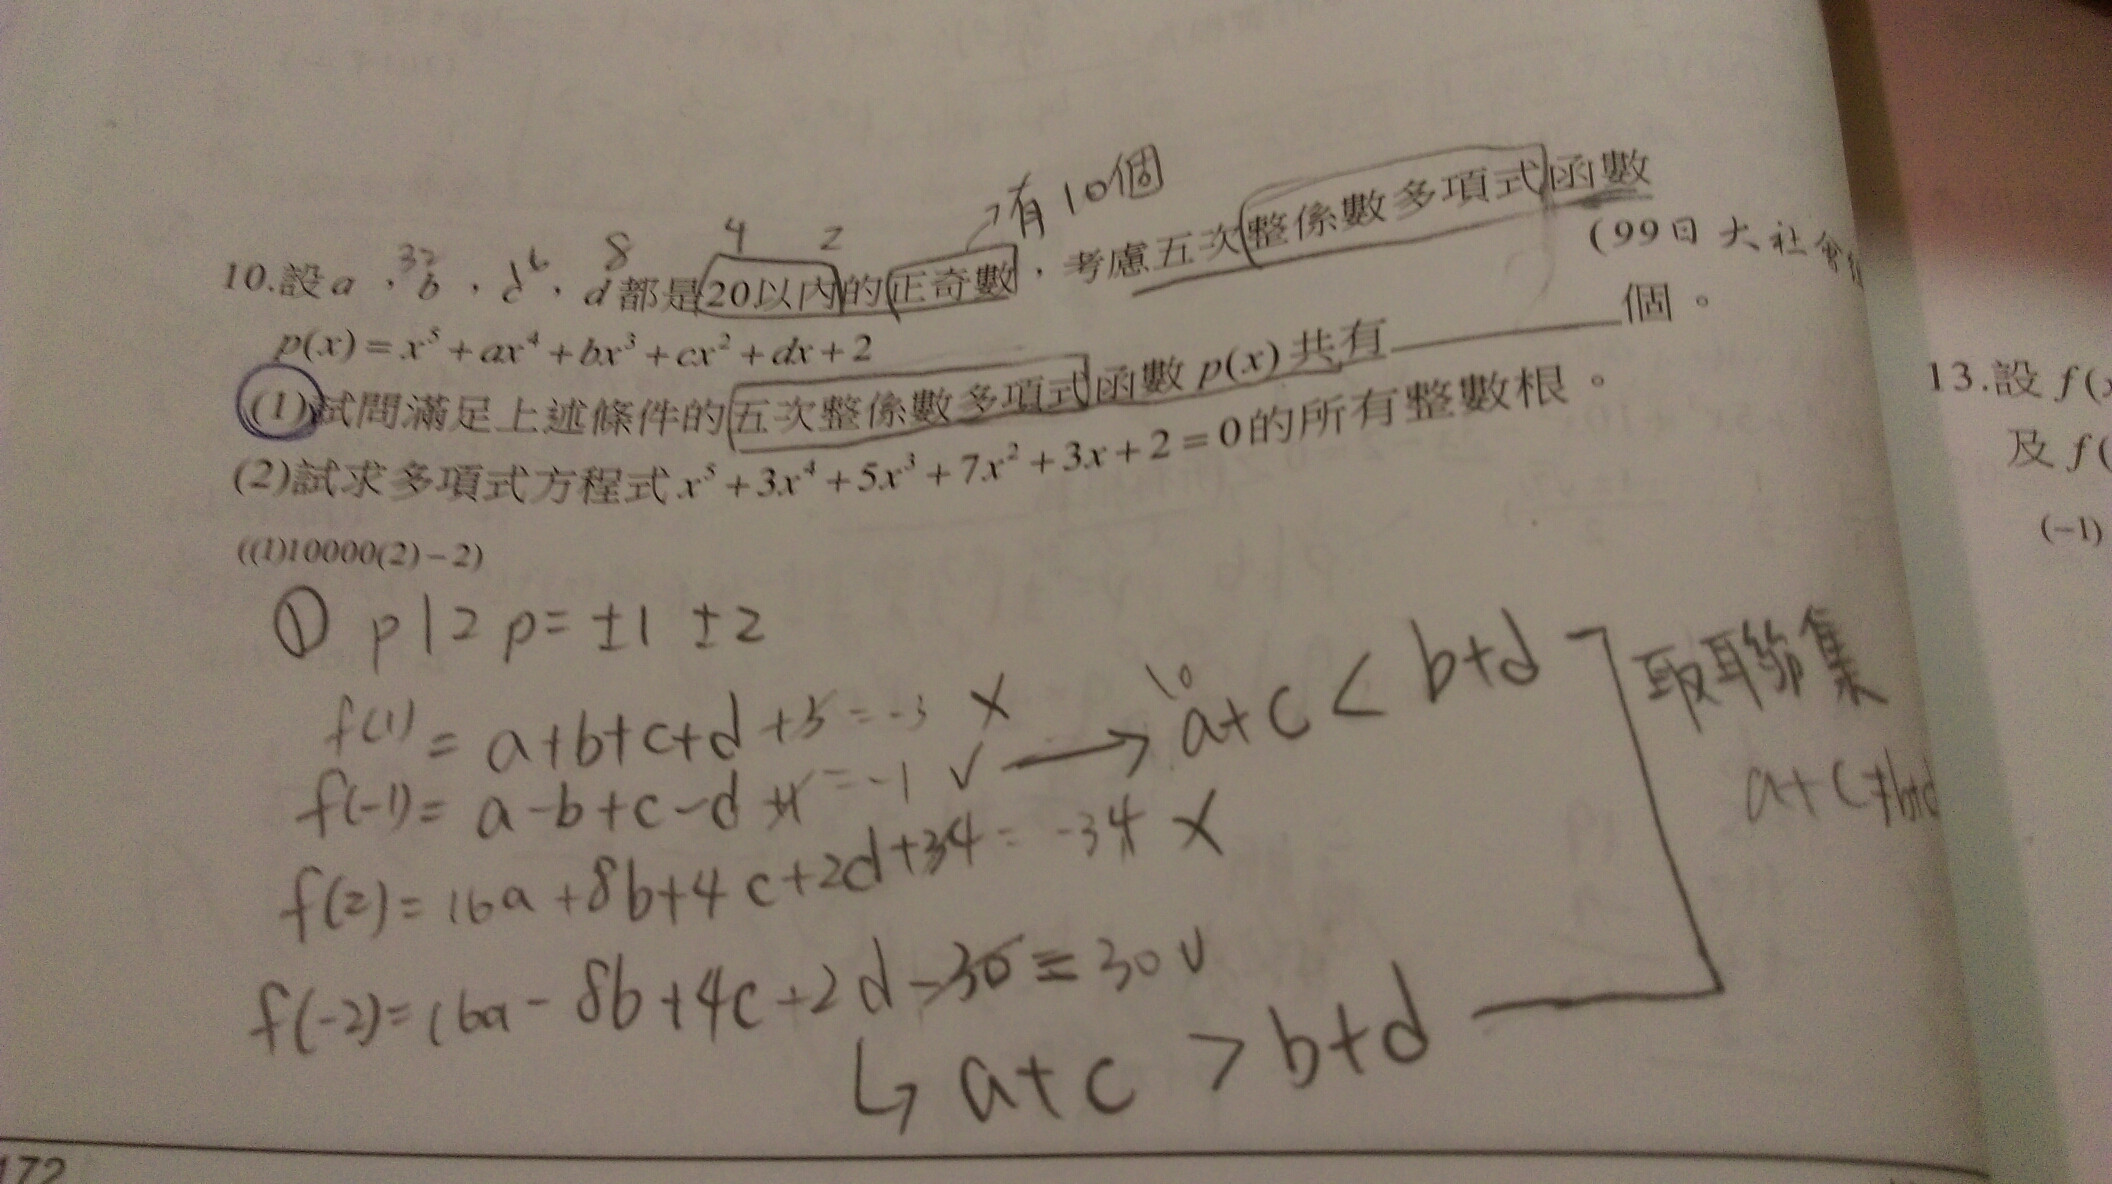 →有10個
32 6 8 4 2
10.設a,b,c,d都是20以內的正奇數,考慮五次整係數多項式函數
(99日大社會
p(x)=x⁵+ax⁴+bx³+cx²+dx+2
(1)試問滿足上述條件的五次整係數多項式函數p(x)共有______個。
(2)試求多項式方程式x⁵+3x⁴+5x³+7x²+3x+2=0的所有整數根。
((1)10000(2)-2)
① p|2 p=±1 ±2
f(1)=a+b+c+d+3=-3 ×
f(-1)=a-b+c-d+1=-1 ✓ → a+c<b+d
10
取聯集
a+c≠b+d
f(2)=16a+8b+4c+2d+34=-34 ×
f(-2)=16a-8b+4c+2d-30=30 ✓
↳ a+c>b+d
172
13.設f(x
及f(
(-1)